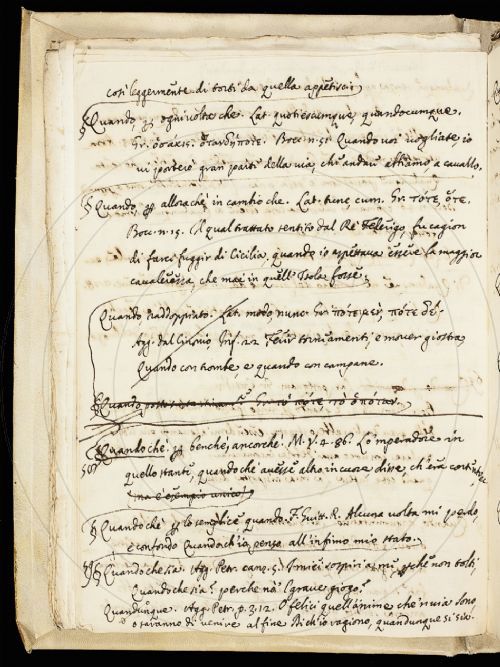 così leggermente di torti da quella appetiscie
§ Quando, per ogni volta che. Lat. quotiescunque, quandocumque.
Gr. ὁσάκις. ὁτανδήποτε. Bocc. n. 51 Quando voi vogliate, io
vi porterò gran parte della via, ch' andar abbiamo, a cavallo.
§ Quando, per allorachè, in cambio che. Lat. tunc cum. Gr. τότε, ὅτε.
Bocc. n. 15. Il qual trattato sentito dal Re Federigo, fu cagion
di farci fuggir di Cicilia, quando io aspettava essere la maggior
cavaleressa, che mai in quell' Isola fosse.
Quando raddoppiato. Lat. modo, nunc. Gr. ποτὲ μὲν, πότε δέ.
Agg. dal Cinonio Inf. 22 Ferir torniamenti, e mover giostra
Quando con trombe, e quando con campane.
§ Quando
§ Quando che. per benchè, ancorchè. M. V. 4. 86. Lo imperadore in
quello stante, quando che avesse altro in cuore, chiese, ch' era
(ma è esempio unico)
§ Quandochè per lo semplice quando. F. Guitt. R. Alcuna volta mi perdo,
e contondo Quandoch' io penso all' infimo mio stato.
§ Quandochesia. Agg. Petr. canz. 5. I miei sospiri a me, perchè non tolti,
Quandochesia? perchè no 'l grave giogo?
Quandunque. Agg. Petr. p. 2. 12. O felici quell' anime, che 'n via sono,
O saranno di venire al fine Di ch' io ragiono, quandunque si sia.